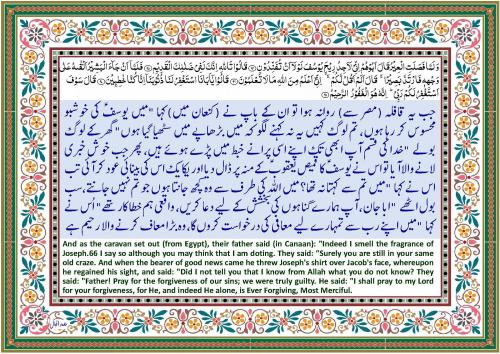 وَلَمَّا فَصَلَتِ الْعِيْرُ قَالَ اَبُوْهُمْ اِنِّىْ لَاَجِدُ رِيْحَ يُوْسُفَ لَوْلَاۤ اَنْ تُفَنِّدُوْنِ قَالُوْا تَاللّٰهِ اِنَّكَ لَفِىْ ضَلٰلِكَ الْقَدِيْمِ فَلَمَّاۤ اَنْ جَآءَ الْبَشِيْرُ اَلْقٰٮهُ عَلٰى
وَجْهِهٖ فَارْتَدَّ بَصِيْرًا قَالَ اَلَمْ اَقُلْ لَّكُمْ اِنِّىْۤ اَعْلَمُ مِنَ اللّٰهِ مَا لَا تَعْلَمُوْنَ قَالُوْا يٰۤاَبَانَا اسْتَغْفِرْ لَنَا ذُنُوْبَنَاۤ اِنَّا كُنَّا خٰطِئِيْنَ قَالَ سَوْفَ
اَسْتَغْفِرُ لَكُمْ رَبِّىْ اِنَّهٗ هُوَ الْغَفُوْرُ الرَّحِيْمُ
جب یہ قافلہ (مصر سے) روانہ ہوا تو ان کے باپ نے (کنعان میں) کہا "میں یوسفؑ کی خوشبو
محسوس کر رہا ہوں، تم لوگ کہیں یہ نہ کہنے لگو کہ میں بڑھاپے میں سٹھیا گیا ہوں" گھر کے لوگ
بولے "خدا کی قسم آپ ابھی تک اپنے اسی پرانے خبط میں پڑے ہوئے ہیں، پھر جب خوش خبری
لانے والا آیا تو اس نے یوسفؑ کا قمیص یعقوبؑ کے منہ پر ڈال دیا اور یکایک اس کی بینائی عود کر آئی تب
اس نے کہا "میں تم سے کہتا نہ تھا؟ میں اللہ کی طرف سے وہ کچھ جانتا ہوں جو تم نہیں جانتے، سب
بول اٹھے "ابا جان، آپ ہمارے گناہوں کی بخشش کے لیے دعا کریں، واقعی ہم خطا کار تھے" اُس نے
کہا "میں اپنے رب سے تمہارے لیے معافی کی درخواست کروں گا، وہ بڑا معاف کرنے والا رحیم ہے
And as the caravan set out (from Egypt), their father said (in Canaan): "Indeed I smell the fragrance of
Joseph.66 I say so although you may think that I am doting. They said: "Surely you are still in your same
old craze. And when the bearer of good news came he threw Joseph's shirt over Jacob's face, whereupon
he regained his sight, and said: "Did I not tell you that I know from Allah what you do not know? They
said: "Father! Pray for the forgiveness of our sins; we were truly guilty. He said: "I shall pray to my Lord
for your forgiveness, for He, and indeed He alone, is Ever Forgiving, Most Merciful.